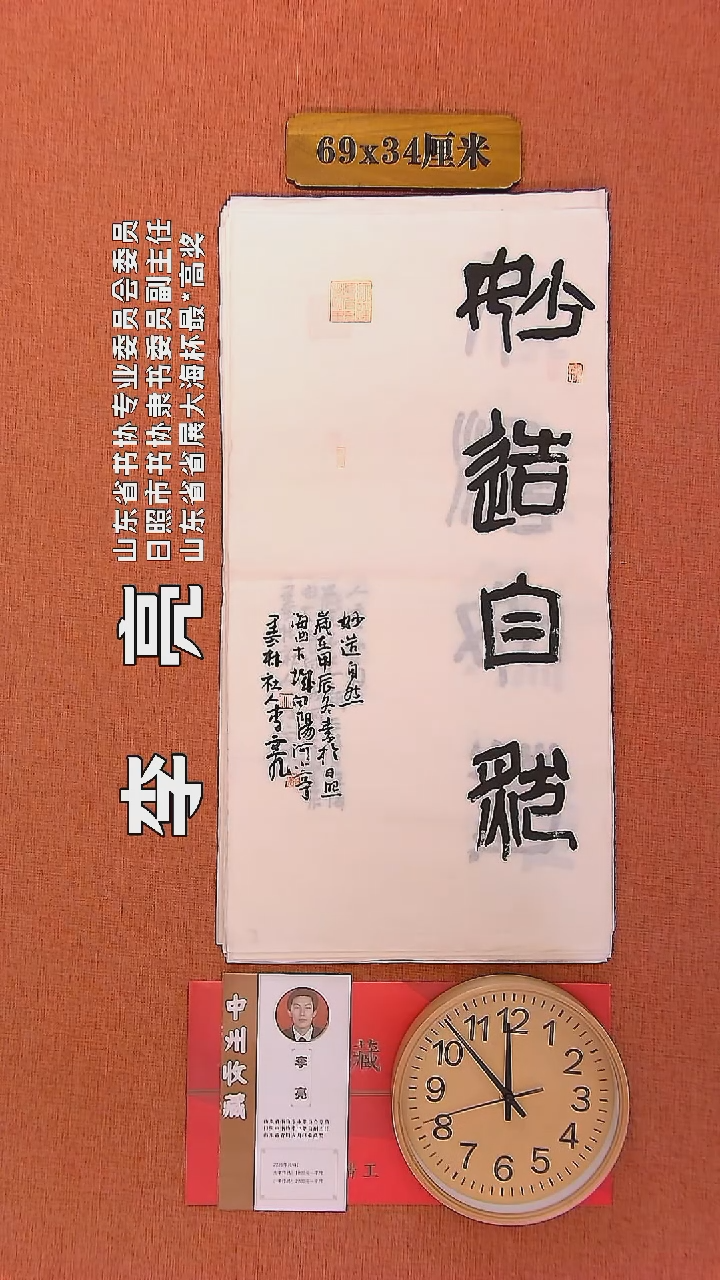 69x34厘米
李亮
山东省书协专业委员会委员
日照市书协隶书委员副主任
山东省省展大海杯最*高奖
妙造自然
妙造自然
岁在甲辰冬素于日照
海西
向阳河
墨林社人李亮
中州收藏
李亮
藏
12
1
2
3
4
5
6
7
8
9
10
11